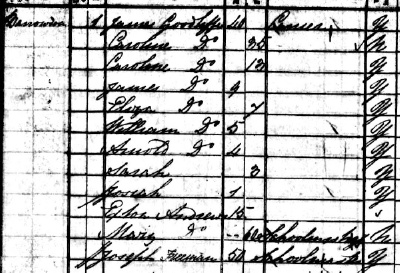 Barrowden 1 James Goodliffe 40 Y
Caroline Do 35 N
Caroline Do 13 Y
James Do 9 Y
Eliza Do 7 Y
William Do 5 Y
Arnold Do 4 Y
Sarah 3 Y
Josiah 1 Y
Andrews 15
Mary Do 60 N
Joseph Freeman 50 Y